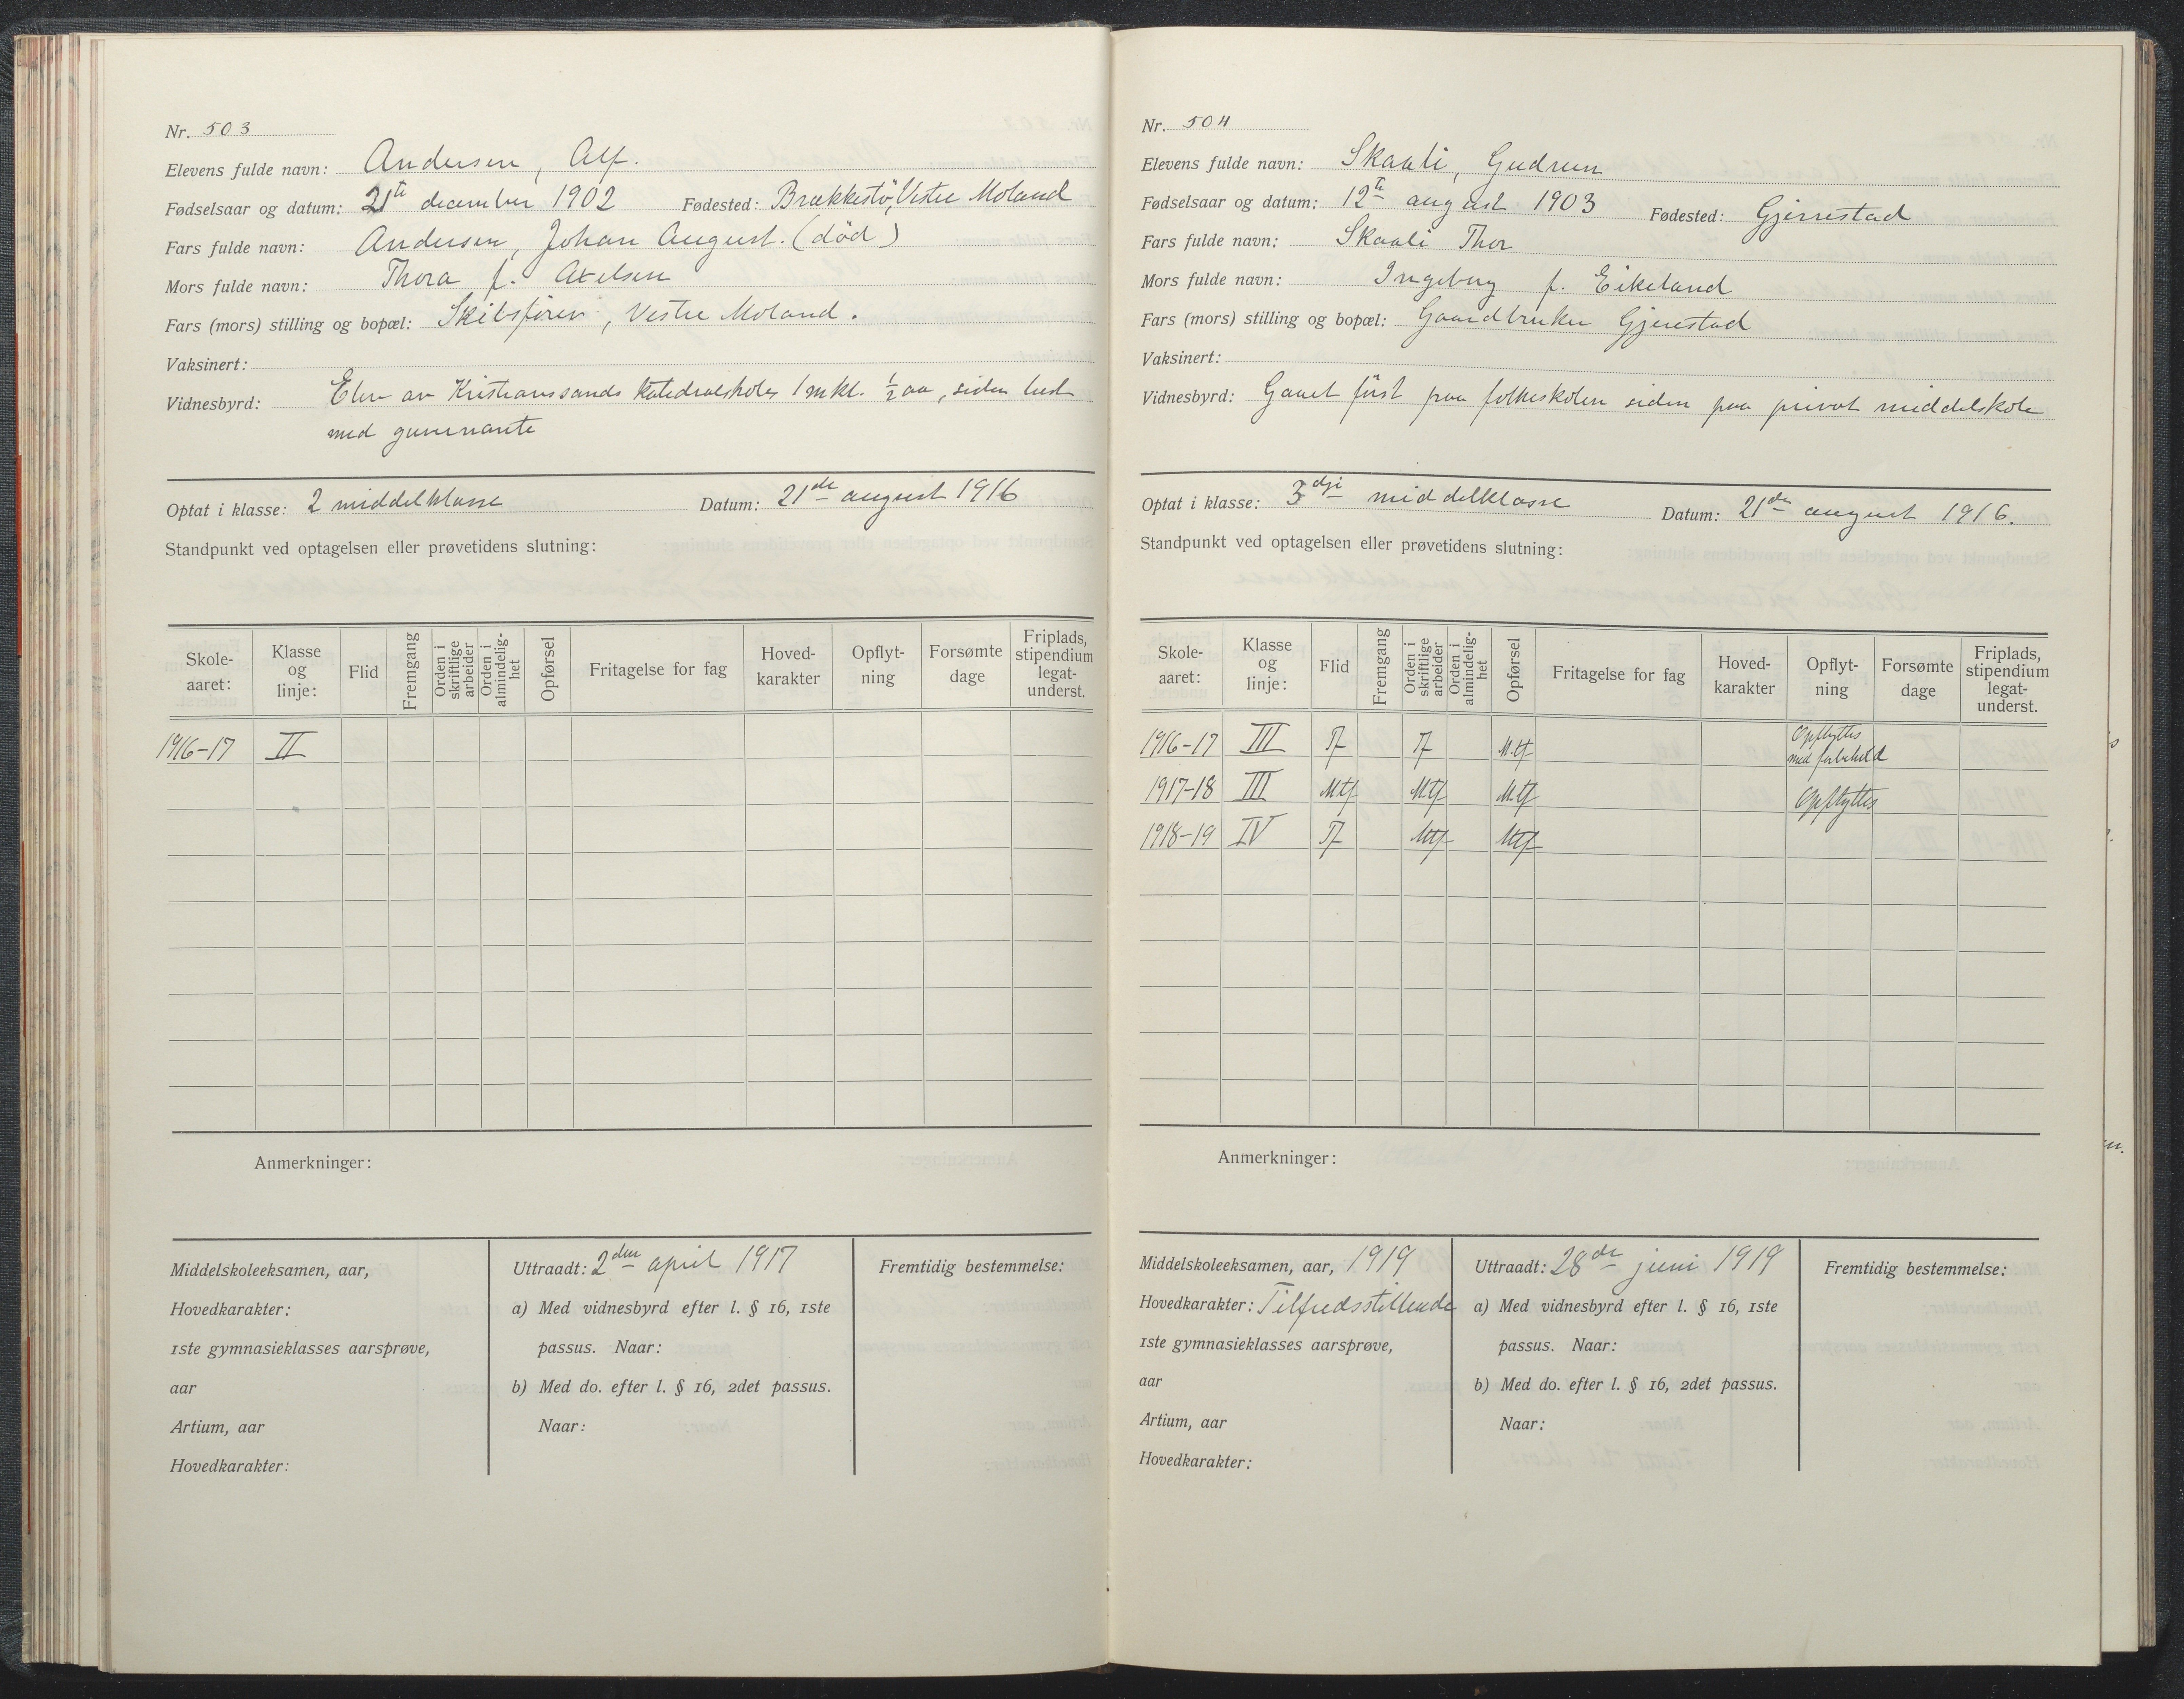 Nr. 503
Elevens fulde navn: Andersen, Alf.
Fødselsaar og datum: 21te december 1902 Fødested: Brækkestö, Vestre Moland
Fars fulde navn: Andersen, Johan August. (död)
Mors fulde navn: Thora f. Axelsen
Fars (mors) stilling og bopæl: Skibsförer, Vestre Moland.
Vaksinert:
Vidnesbyrd: Elev av Kristianssands katedralskoles 1 mkl. ½ aar, siden læst
med guvernante
Optat i klasse: 2 middelklasse Datum: 21de august 1916
Standpunkt ved optagelsen eller prøvetidens slutning:
Skole-aaret: Klasse og linje: Flid Fremgang Orden i skriftlige arbeider Orden i almindelig-het Opførsel Fritagelse for fag Hoved-karakter Opflyt-ning Forsømte dage Friplads, stipendium legat-underst.
1916-17 II
Anmerkninger:
Middelskoleeksamen, aar,
Hovedkarakter:
1ste gymnasieklasses aarsprøve,
aar
Artium, aar
Hovedkarakter:
Uttraadt: 2den april 1917
a) Med vidnesbyrd efter l. § 16, 1ste
passus. Naar:
b) Med do. efter l. § 16, 2det passus.
Naar:
Fremtidig bestemmelse:
Nr. 504
Elevens fulde navn: Skaali, Gudrun
Fødselsaar og datum: 12te august 1903 Fødested: Gjerrestad
Fars fulde navn: Skaali Thor
Mors fulde navn: Ingeborg f. Eikeland
Fars (mors) stilling og bopæl: Gaardbruker Gjerestad
Vaksinert:
Vidnesbyrd: Gaaet först paa folkeskolen siden paa privat middelskole
Optat i klasse: 3dje middelklasse Datum: 21de august 1916.
Standpunkt ved optagelsen eller prøvetidens slutning:
Skole-aaret: Klasse og linje: Flid Fremgang Orden i skriftlige arbeider Orden i almindelig-het Opførsel Fritagelse for fag Hoved-karakter Opflyt-ning Forsømte dage Friplads, stipendium legat-underst.
1916-17 III Tf Tf M.tf Opflyttes med forbehold
1917-18 III Mtf Mtf Mtf Opflyttes
1918-19 IV Tf Mtf Mtf
Anmerkninger:
Middelskoleeksamen, aar, 1919
Hovedkarakter: Tilfredsstillende
1ste gymnasieklasses aarsprøve,
aar
Artium, aar
Hovedkarakter:
Uttraadt: 28de juni 1919
a) Med vidnesbyrd efter l. § 16, 1ste
passus. Naar:
b) Med do. efter l. § 16, 2det passus.
Naar:
Fremtidig bestemmelse: